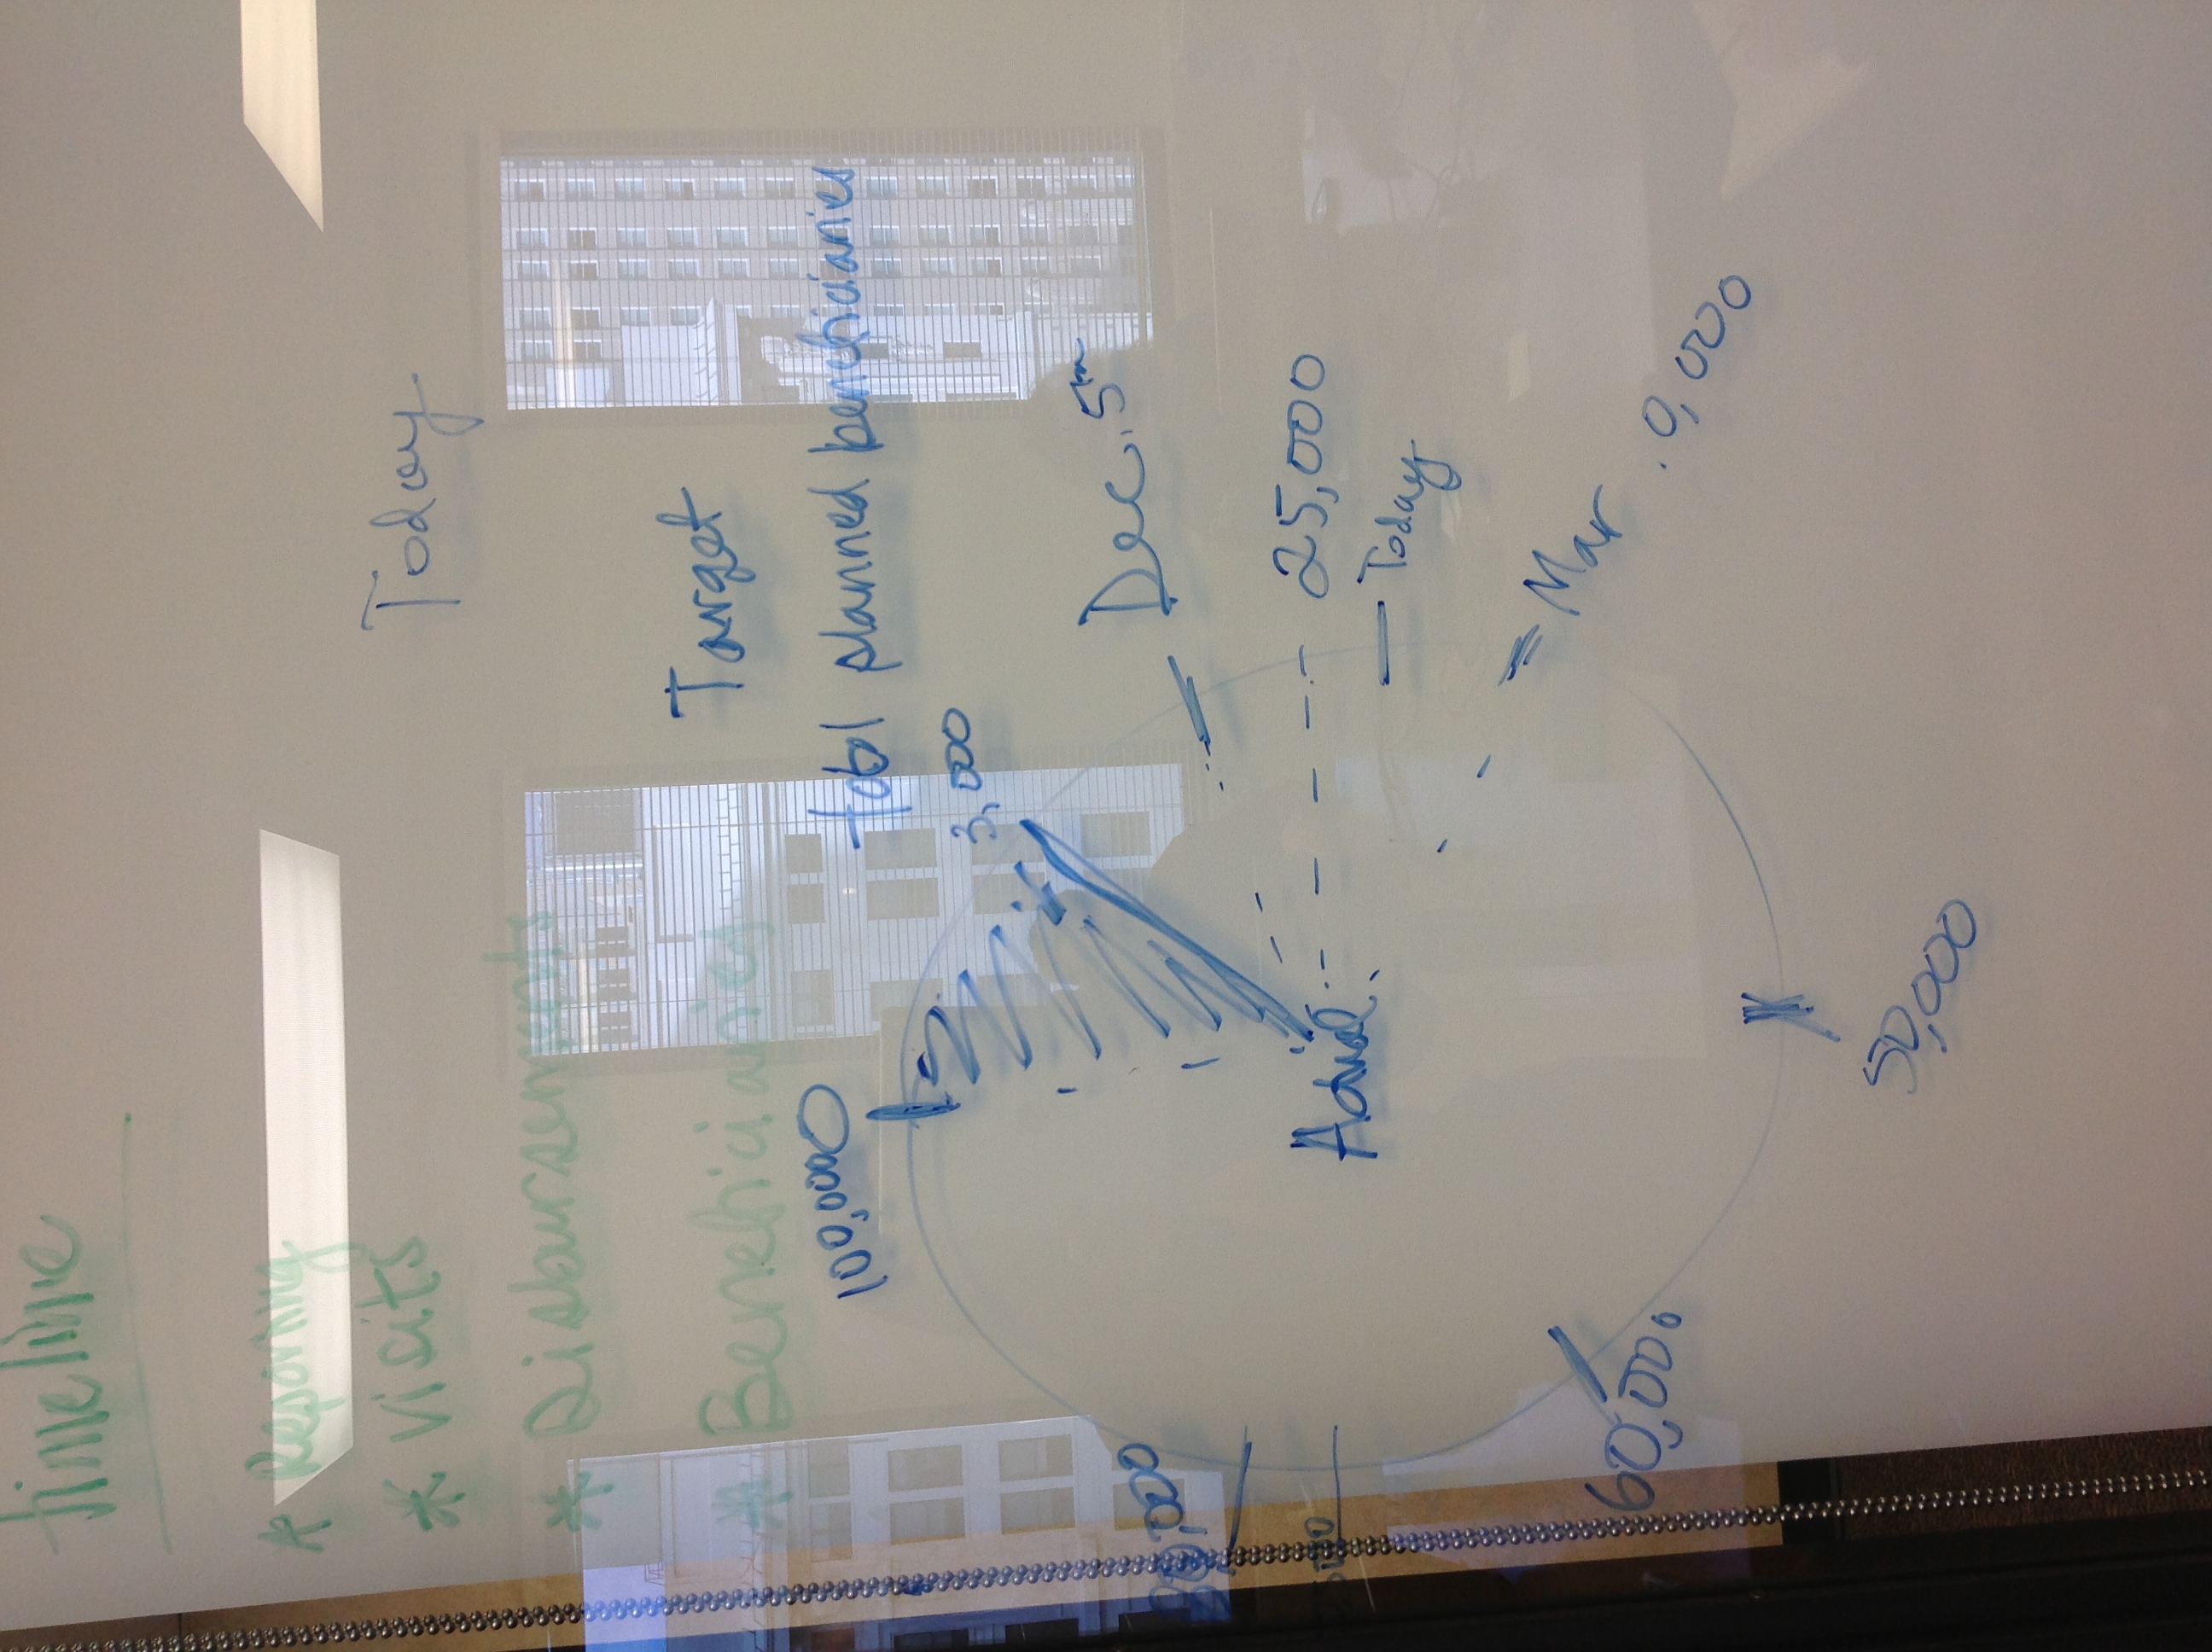 timeline
* Reporting
* visits
* Disbursements
* Beneficiaries
Today
Target
total planned beneficiaries
100,000
3,000
Dec. 5th
25,000
Today
Mar
Actual
80,000
60,000
50,000